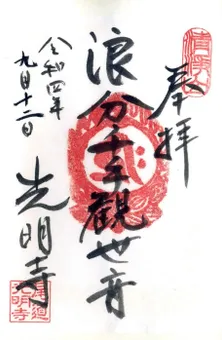 奉拝
浪分千手観世音
令和四年
九月十二日
光明寺
尾道
光明寺